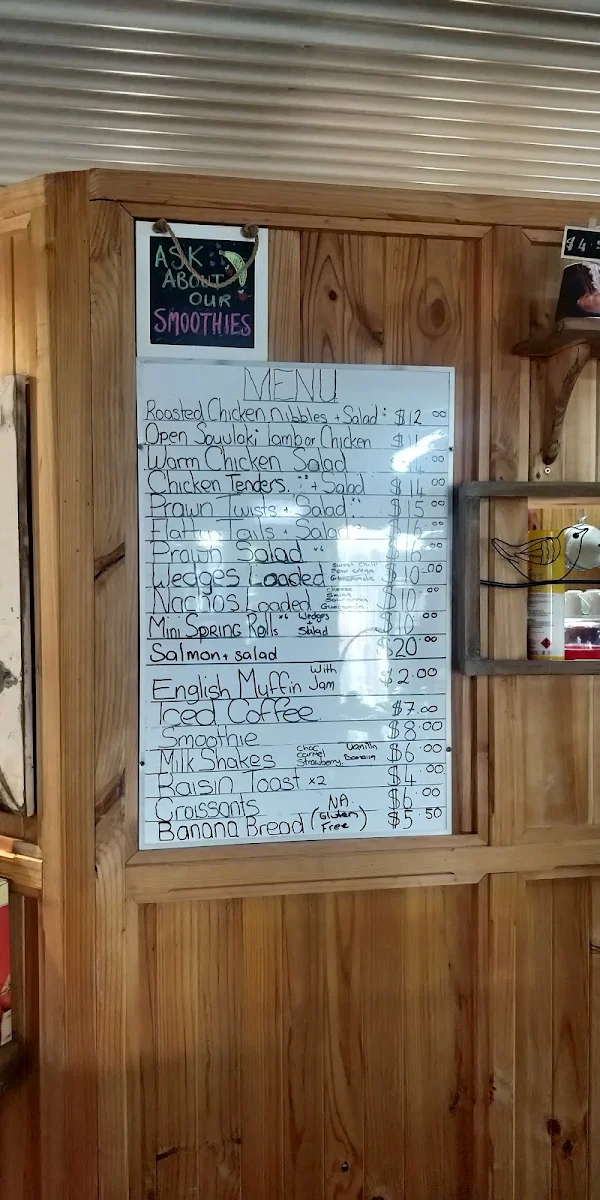 ASK
ABOUT
OUR
SMOOTHIES
$4.
MENU
Roasted Chicken Nibbles + Salad: $12.00
Open Souvlaki lamb or Chicken
Warm Chicken Salad
Chicken Tenders. x3 + Salad $14
Prawn Twists + Salad $15.00
Flatty Tails + Salad $16.00
Prawn Salad x4 $16.00
Wedges Loaded Sweet Chilli Sour cream Guacamole $10.00
Nachos Loaded Cheese Salsa Sour cream Guacamole $10.00
Mini Spring Rolls x6 Wedges + Salad $10.00
Salmon + salad $20.00
English Muffin With Jam $2.00
Iced Coffee $7.00
Smoothie $8.00
Milk Shakes choc vanilla caramel Strawberry, Banana $6.00
Raisin Toast x2 $4.00
Croissants $6.00
Banana Bread (NA Gluten Free) $5.50